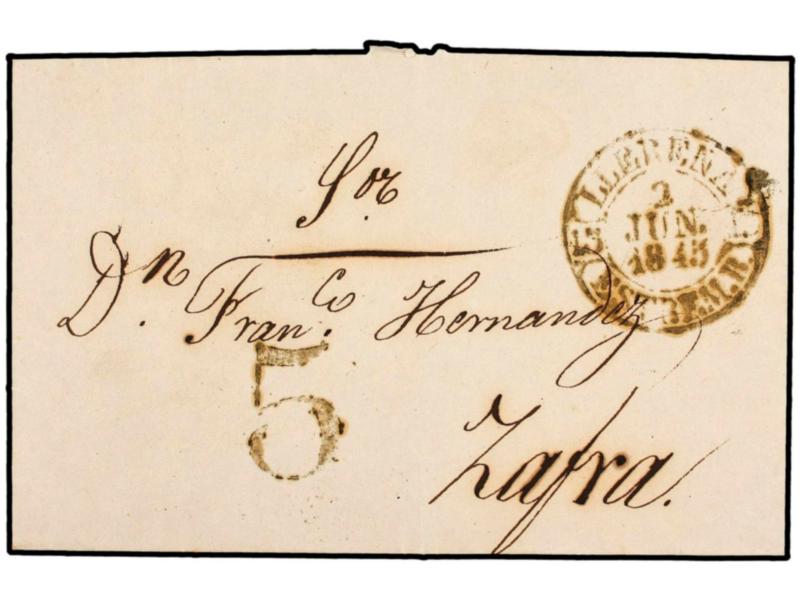 Sor.
Dn. Franco. Hernandez
Zafra.
5
LLERENA
2
JUN.
1845
ESTREM. B.